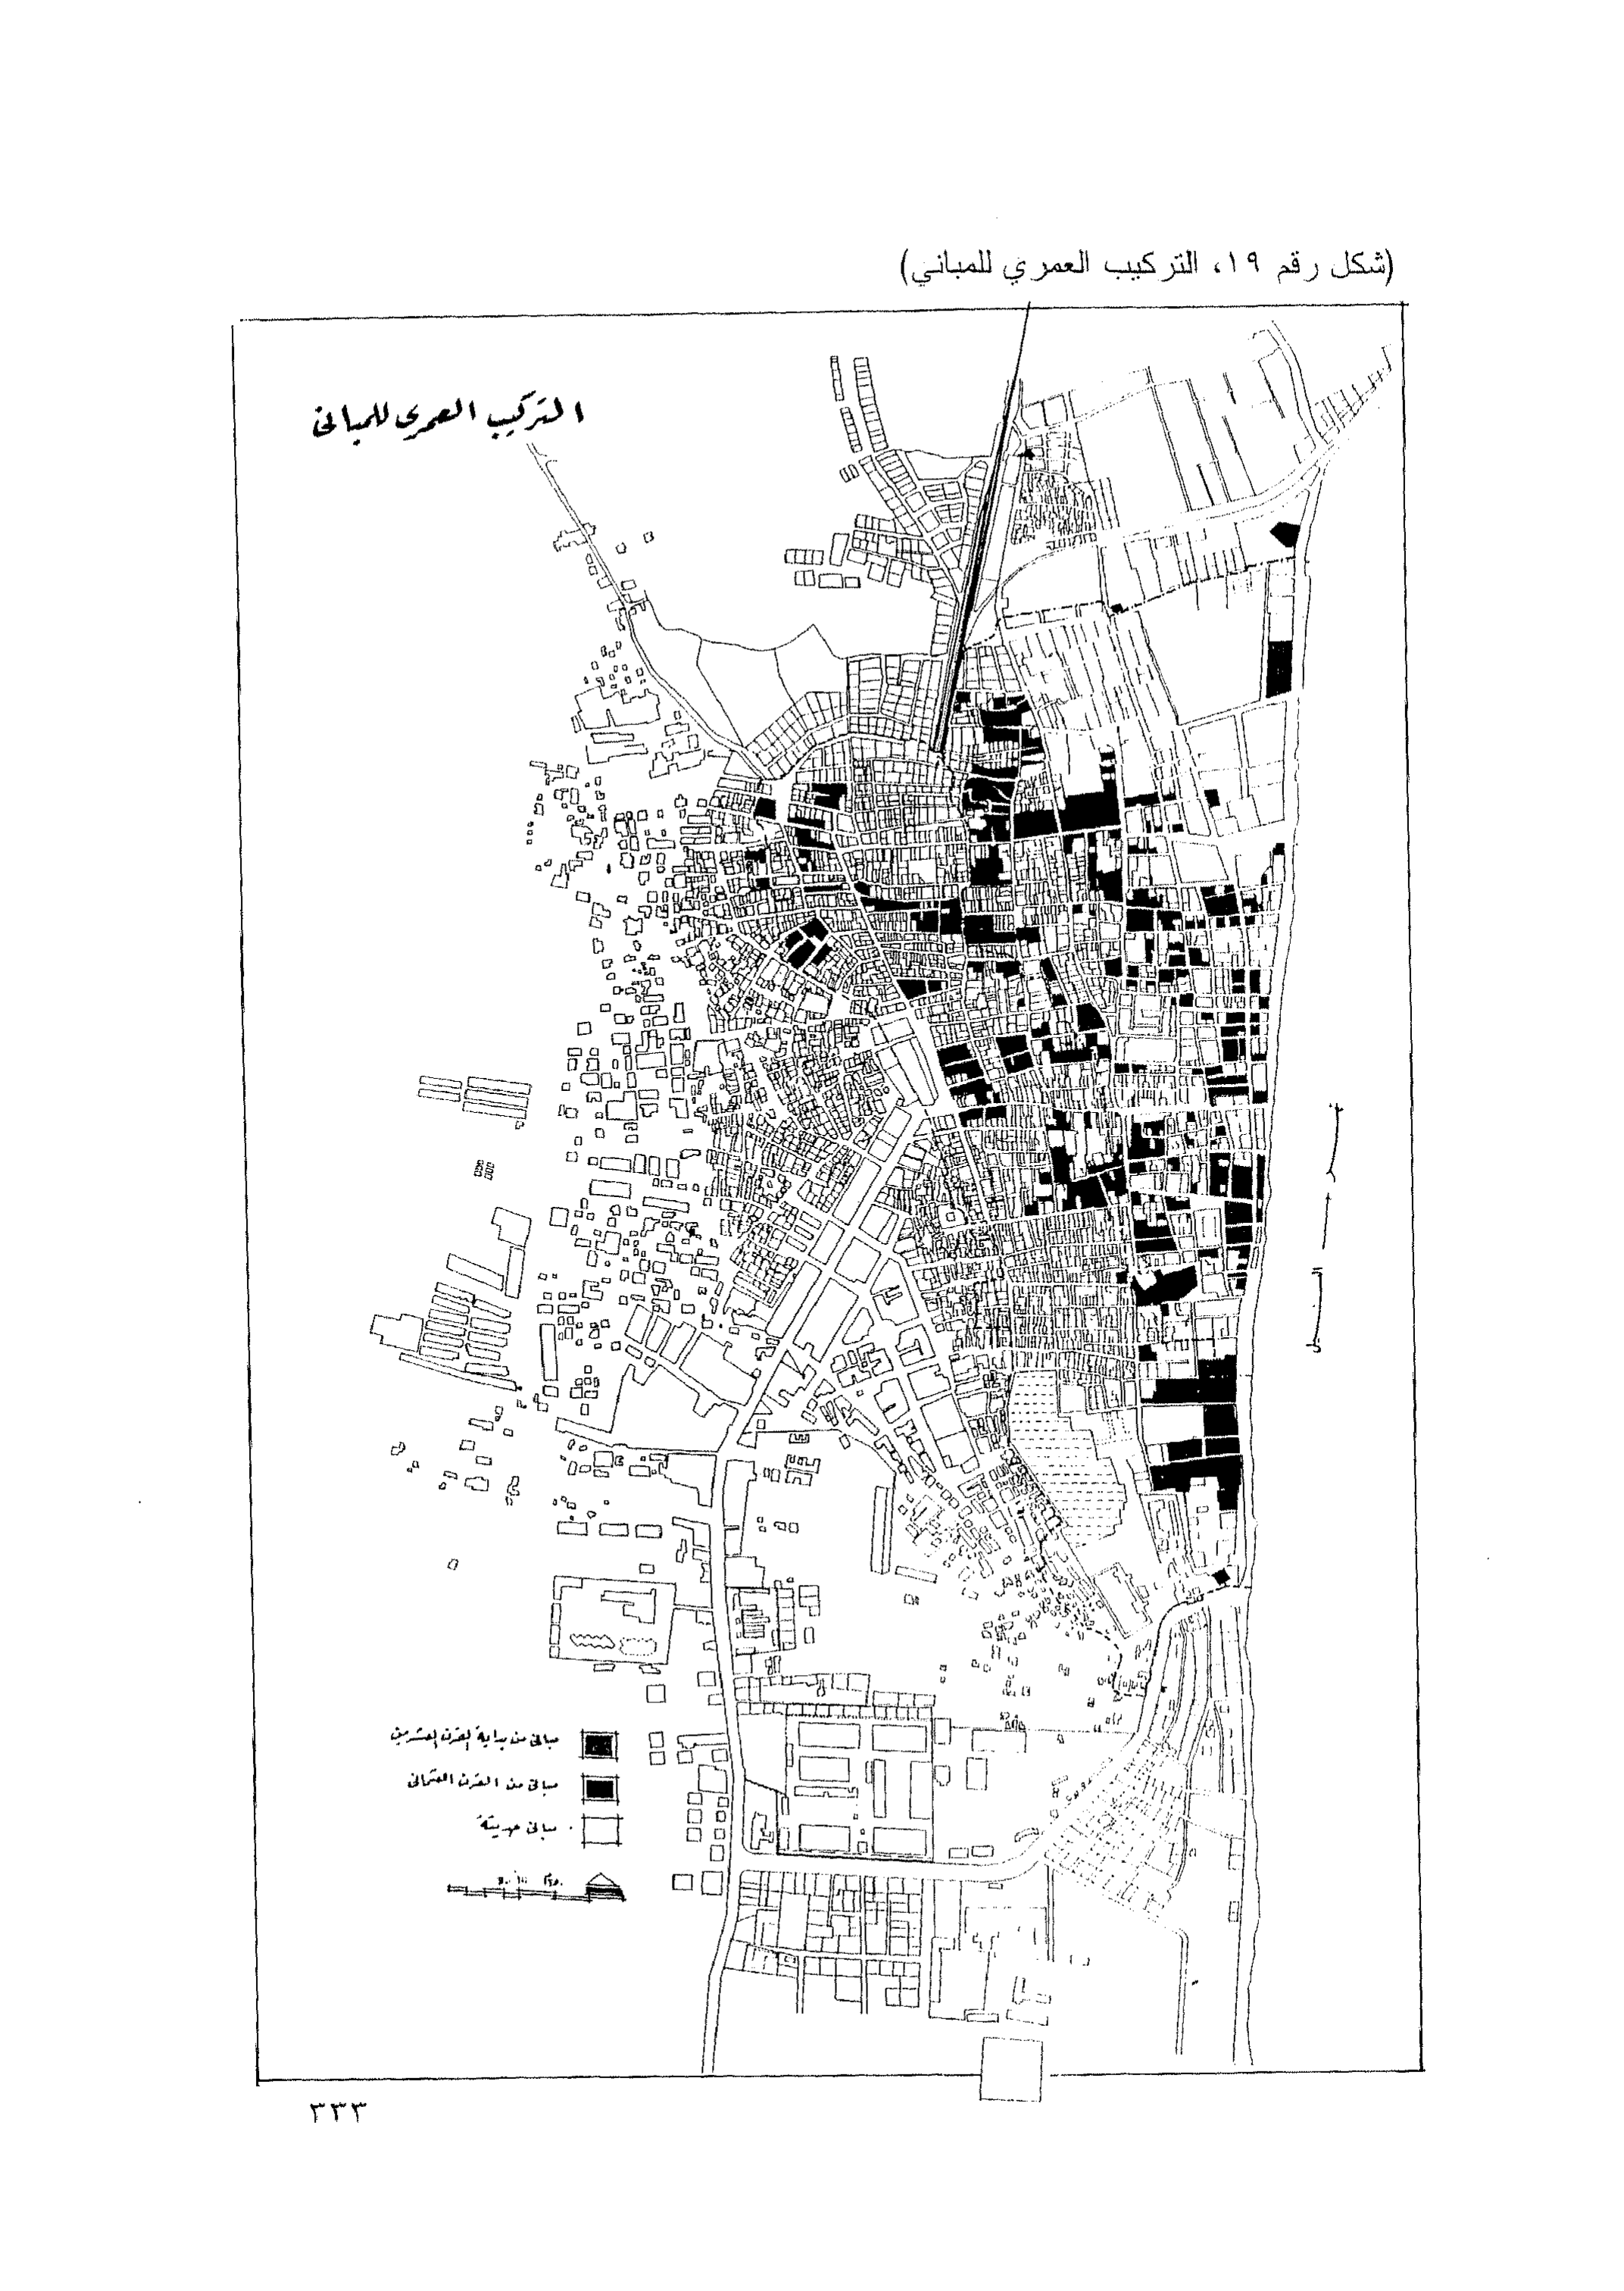 (شكل رقم ١٩، التركيب العمري للمباني)
التركيب العمرى للمبانى
مبانى من بداية القرن العشرين
مبانى من القرن العثمانى
مبانى حديثة
٣٣٣